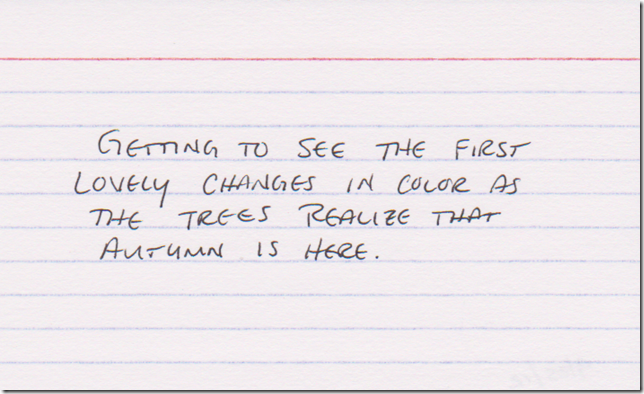 GETTING TO SEE THE FIRST
LOVELY CHANGES IN COLOR AS
THE TREES REALIZE THAT
AUTUMN IS HERE.